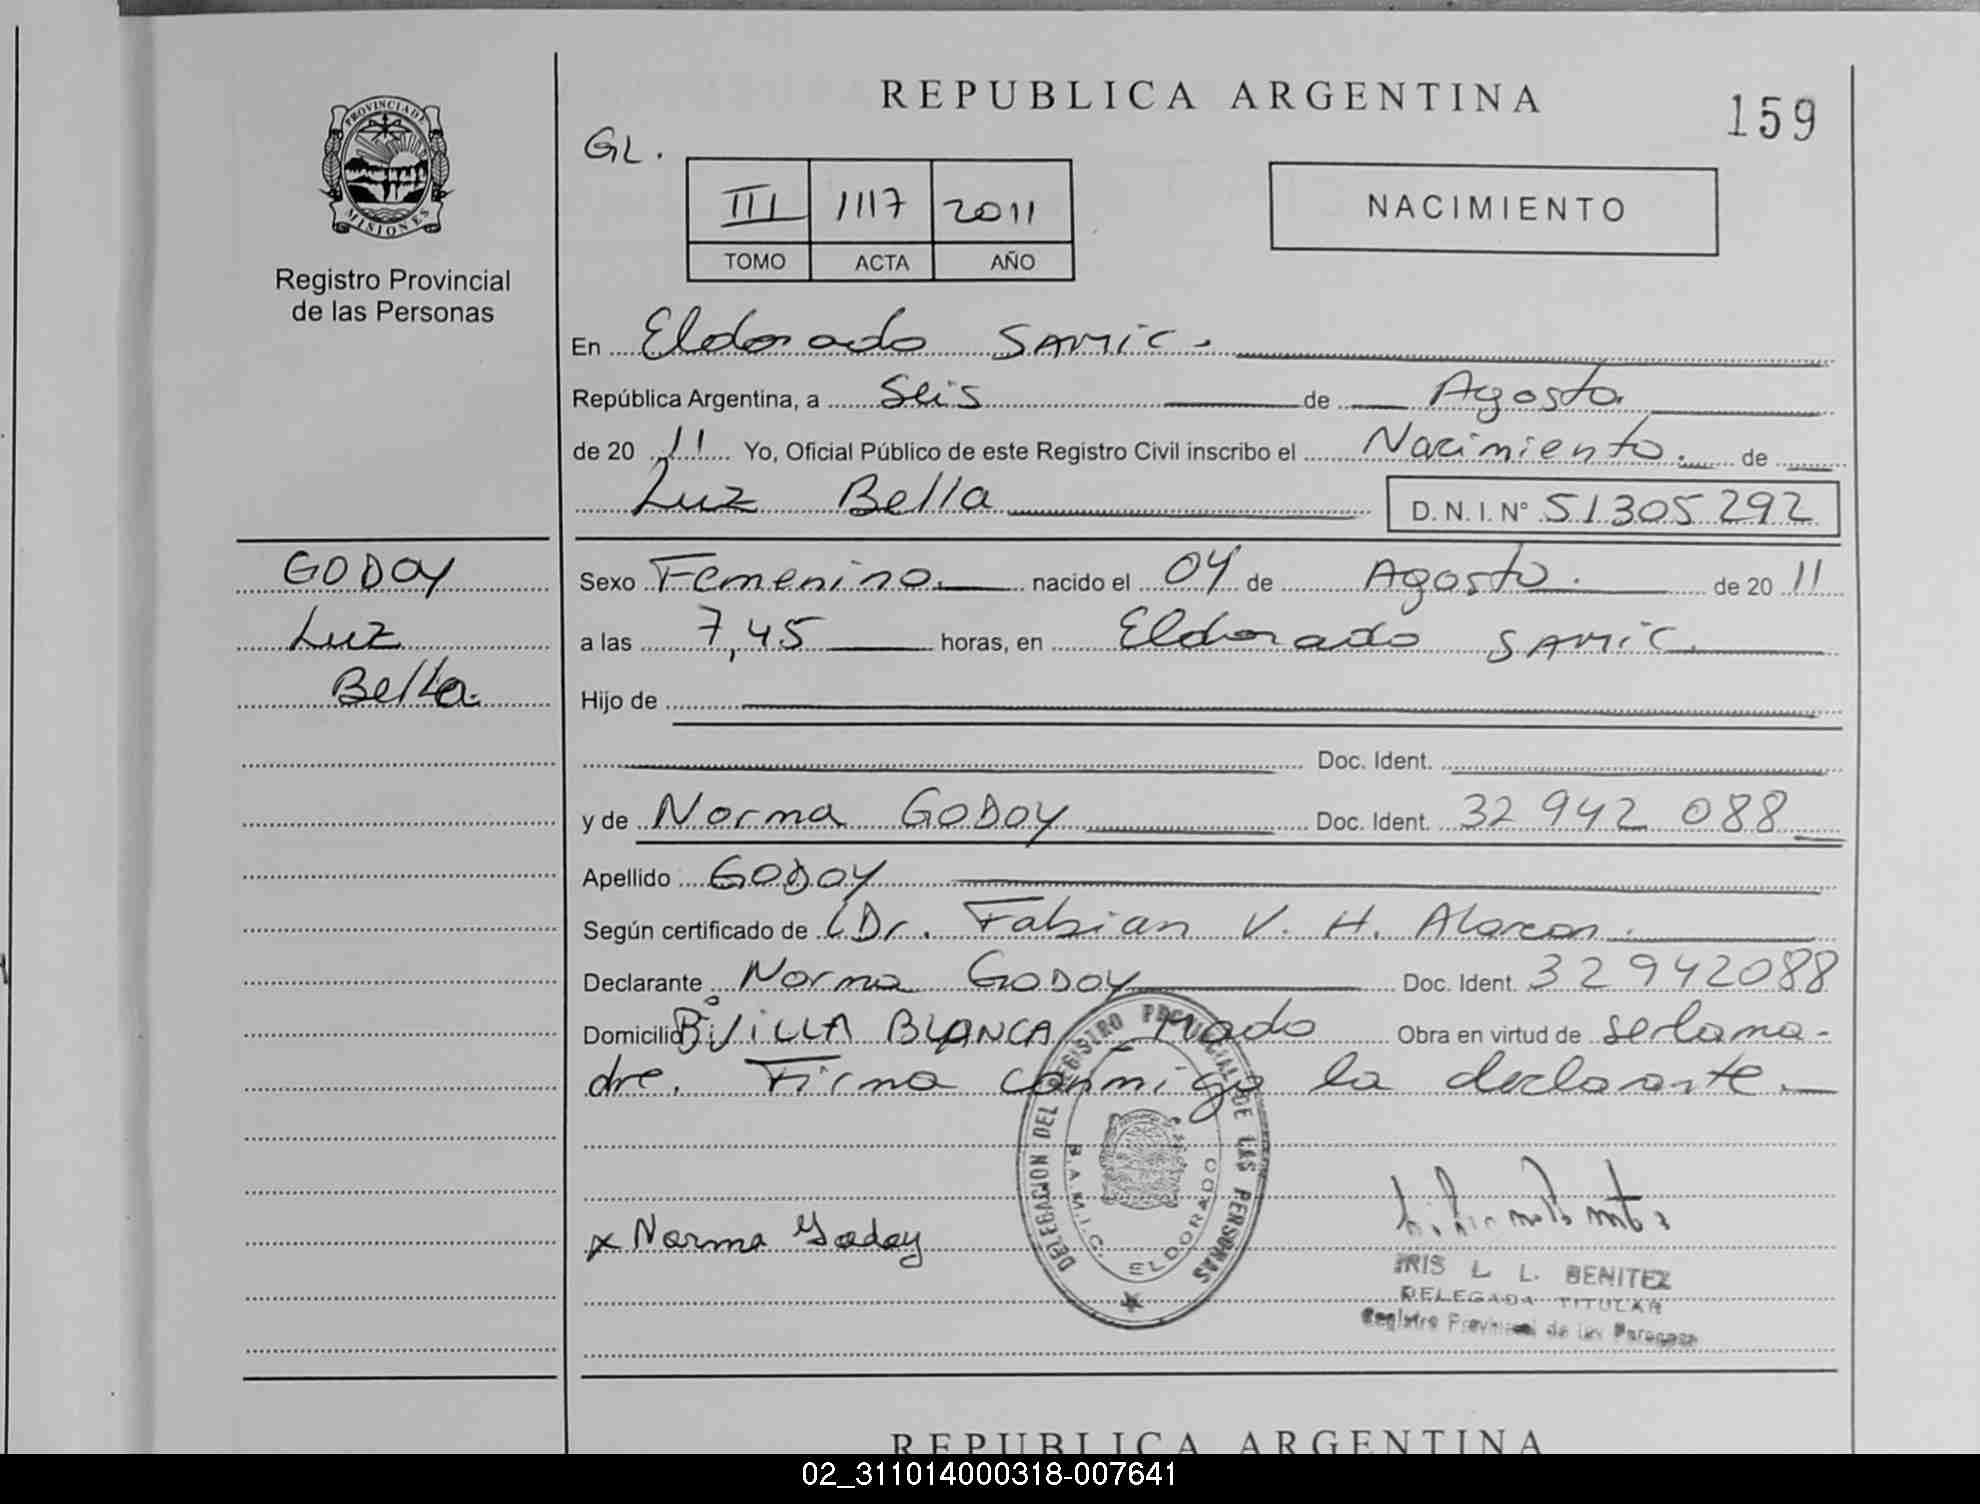 REPUBLICA ARGENTINA
159
GL.
PROVINCIA DE
MISIONES
Registro Provincial
de las Personas
III 1117 2011
TOMO ACTA AÑO
NACIMIENTO
En Eldorado SAMIC.
República Argentina, a Seis de Agosto.
de 20 11 Yo, Oficial Público de este Registro Civil inscribo el Nacimiento. de
Luz Bella D. N. I. N° 51305292
GODOY
Luz
Bella.
Sexo Femenino. nacido el 04 de Agosto. de 20 11
a las 7,45 horas, en Eldorado SAMIC.
Hijo de
Doc. Ident.
y de Norma GODOY Doc. Ident. 32 942 088
Apellido GODOY
Según certificado de (Dr. Fabian V. H. Alarcon.
Declarante Norma GODOY Doc. Ident. 32942088
Domicilio B° VILLA BLANCA Mado Obra en virtud de ser la ma-
dre. Firma conmigo la declarante.
x Norma Godoy
DELEGACION DEL REGISTRO PROVINCIAL DE LAS PERSONAS
S.A.M.I.C. ELDORADO
IRIS L. L. BENITEZ
DELEGADA TITULAR
Registro Provincial de las Personas
REPUBLICA ARGENTINA
02_311014000318-007641